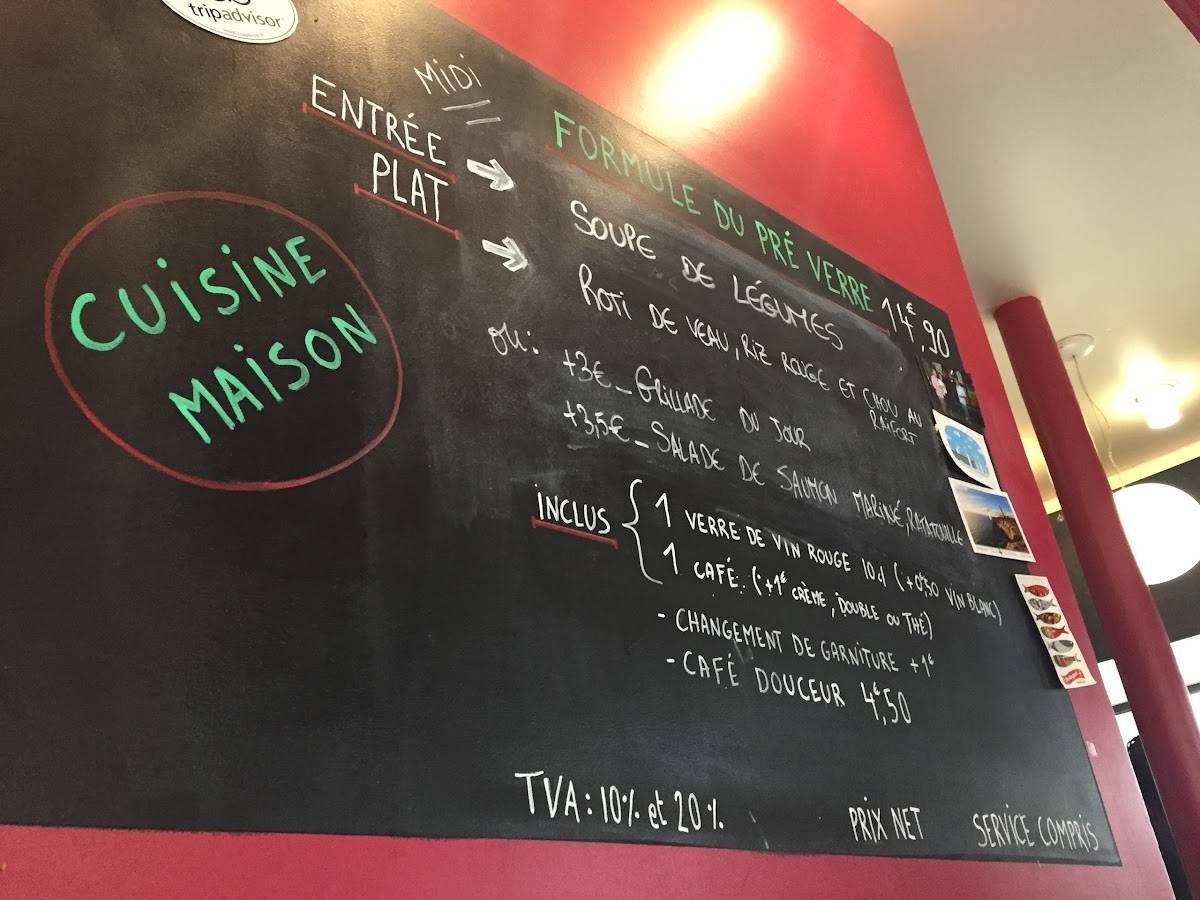 tripadvisor
MiDi
FORMULE DU PRÉ VERRE 14€,90
ENTRÉE
SOUPE DE LÉGUMES
PLAT
ROTI DE VEAU, RIZ ROUGE ET CHOU AU
RAIFORT
ou: +3€ - GRILLADE DU JOUR
+3,5€ - SALADE DE SAUMON MARINÉ, RATATOUILLE
CUiSiNE
MAiSON
iNCLUS { 1 VERRE DE VIN ROUGE 10cl (+0€,50 VIN BLANC)
1 CAFÉ.. (+1€ CRÈME, DOUBLE OU THÉ)
- CHANGEMENT DE GARNITURE +1€
- CAFÉ DOUCEUR 4€,50
TVA : 10% et 20%
PRiX NET
SERVICE COMPRIS